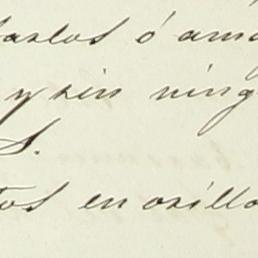 Carlos ó am
y sin ning
S.
tos en orillo